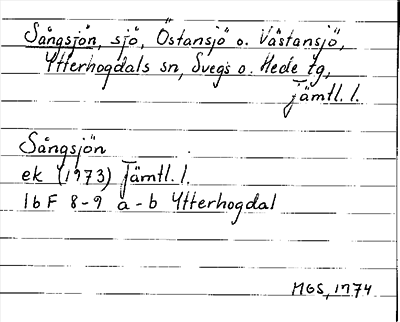 Sångsjön, sjö, Östansjö o. Västansjö,
Ytterhogdals sn, Svegs o. Hede tg,
Jämtl. l.
Sångsjön
ek (1973) Jämtl. l.
16 F 8-9 a-b Ytterhogdal
MGS, 1974